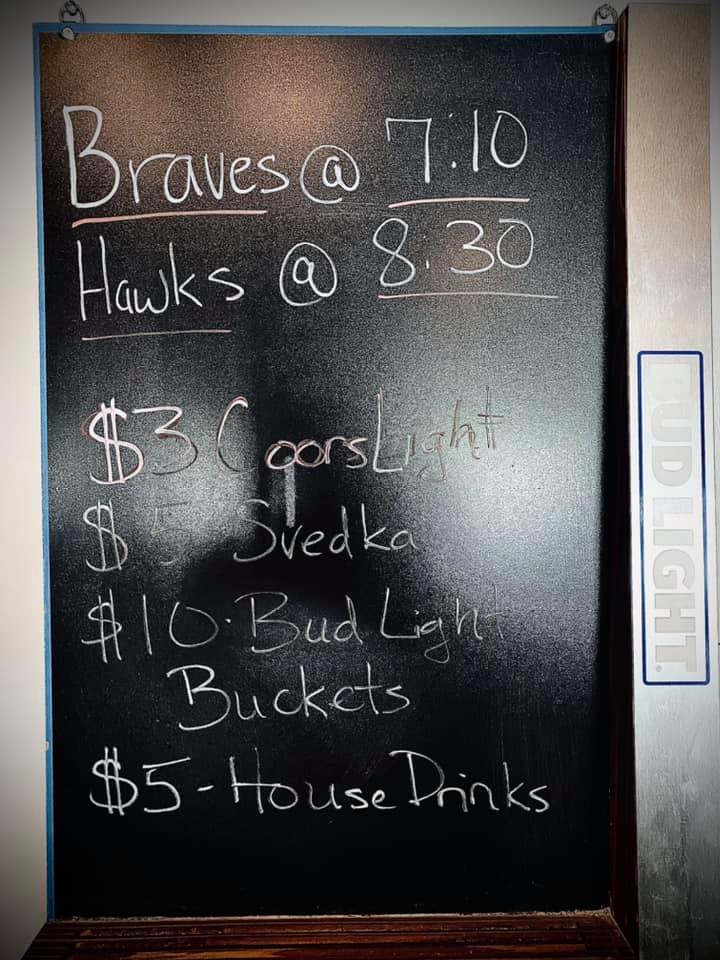 Braves @ 7:10
Hawks @ 8:30
$3 Coors Light
$5 Svedka
$10. Bud Light
Buckets
$5-House Drinks
BUD LIGHT.